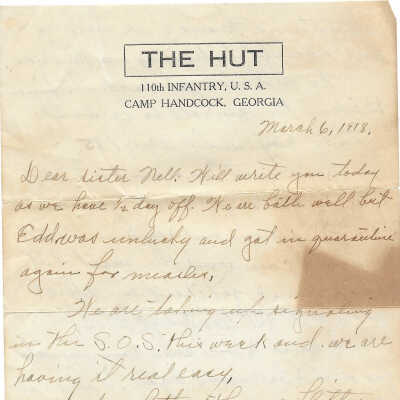 THE HUT
110th INFANTRY, U. S. A.
CAMP HANDCOCK, GEORGIA
March 6, 1918.
Dear sister Nell. Will write you today
as we have ½ day off. We are both well but
Edd was unlucky and got in quarantine
again for measles,
We are taking up signaling
in the S.O.S. this week and we are
having it real easy,